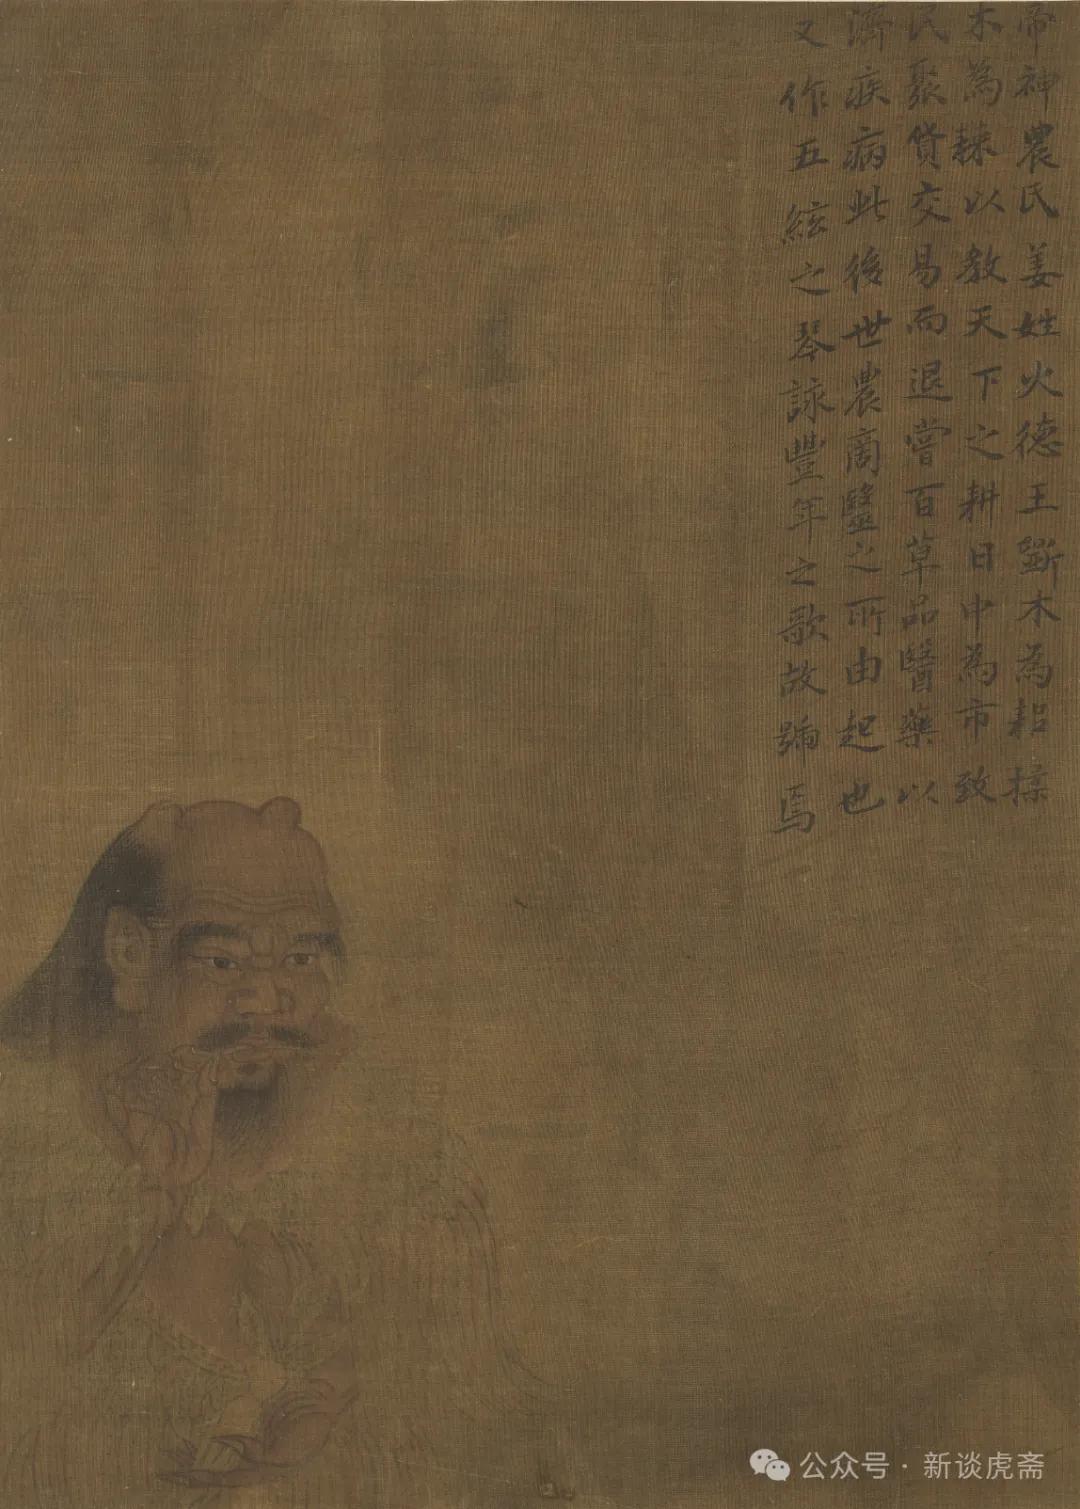 帝神農氏姜姓火德王斵木為耜揉
木為耒以教天下之耕日中為市致
民聚貨交易而退嘗百草品醫藥以
濟疾病此後世農商毉之所由起也
又作五絃之琴詠豐年之歌故號焉
公众号·新谈虎斋